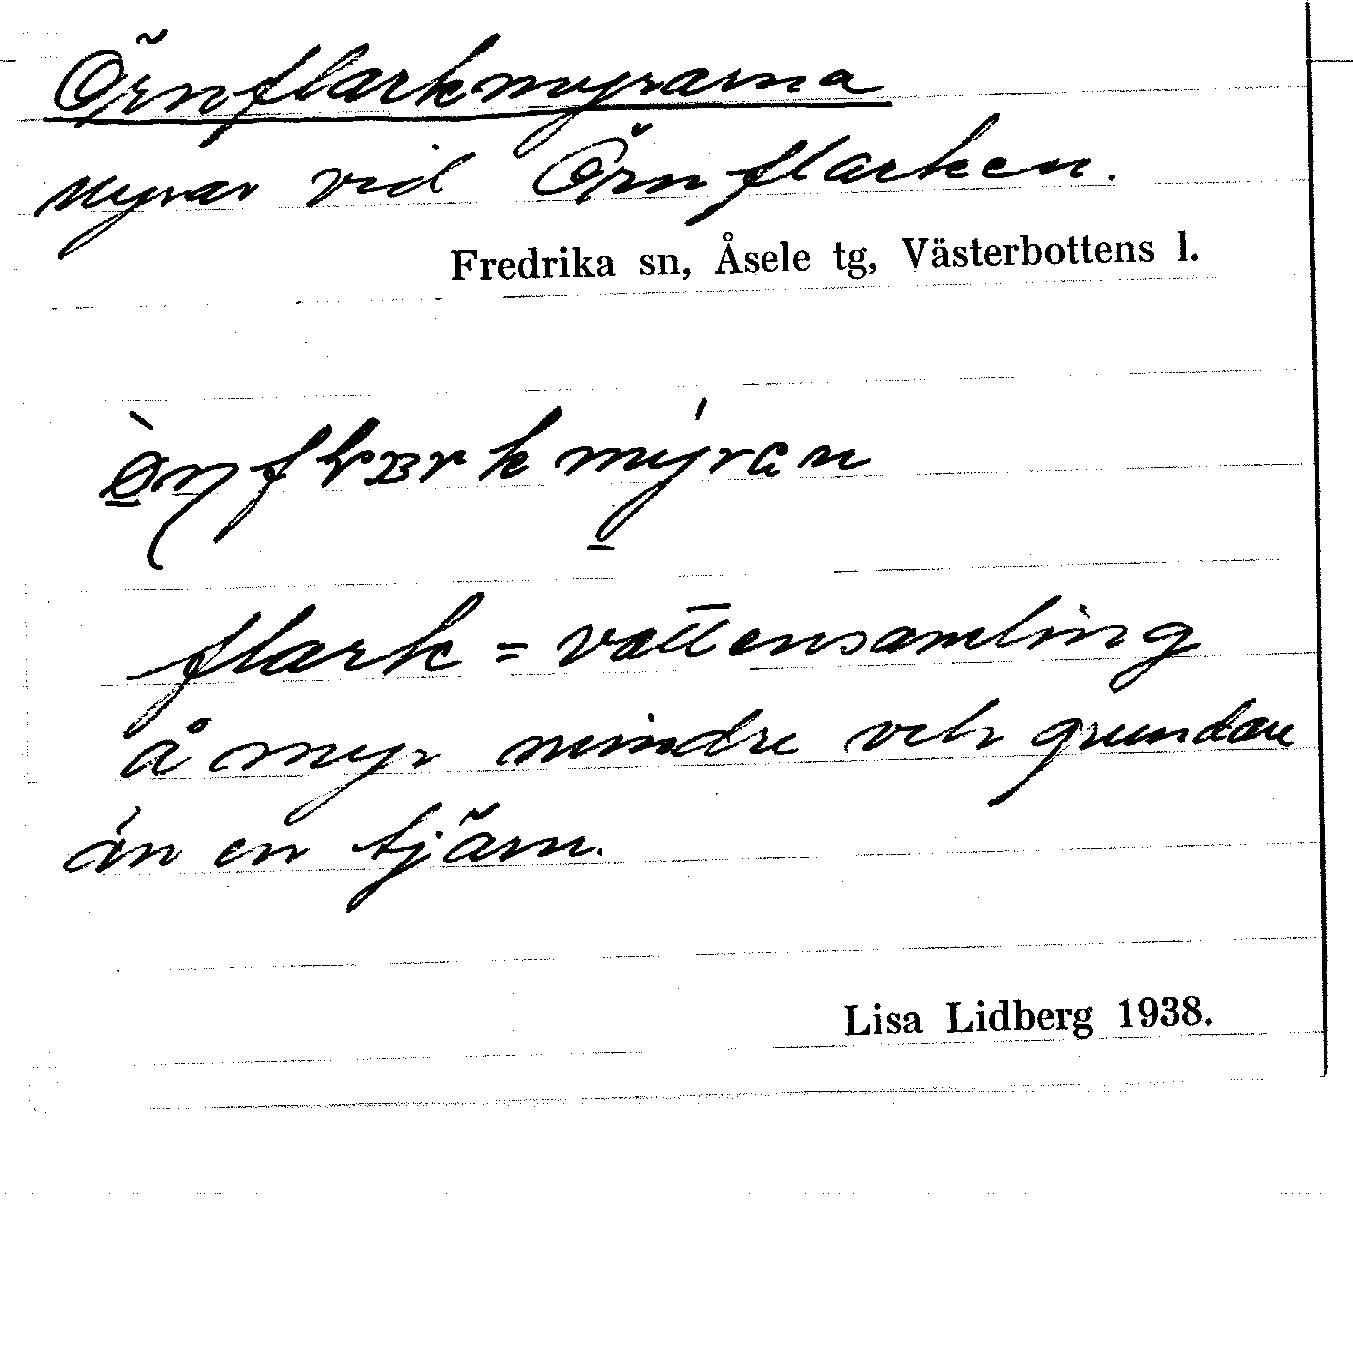 Örnflarkmyrarna
myrar vid Örnflarken.
Fredrika sn, Åsele tg, Västerbottens l.
flark = vattensamling
å myr mindre och grundare
än en tjärn.
Lisa Lidberg 1938.